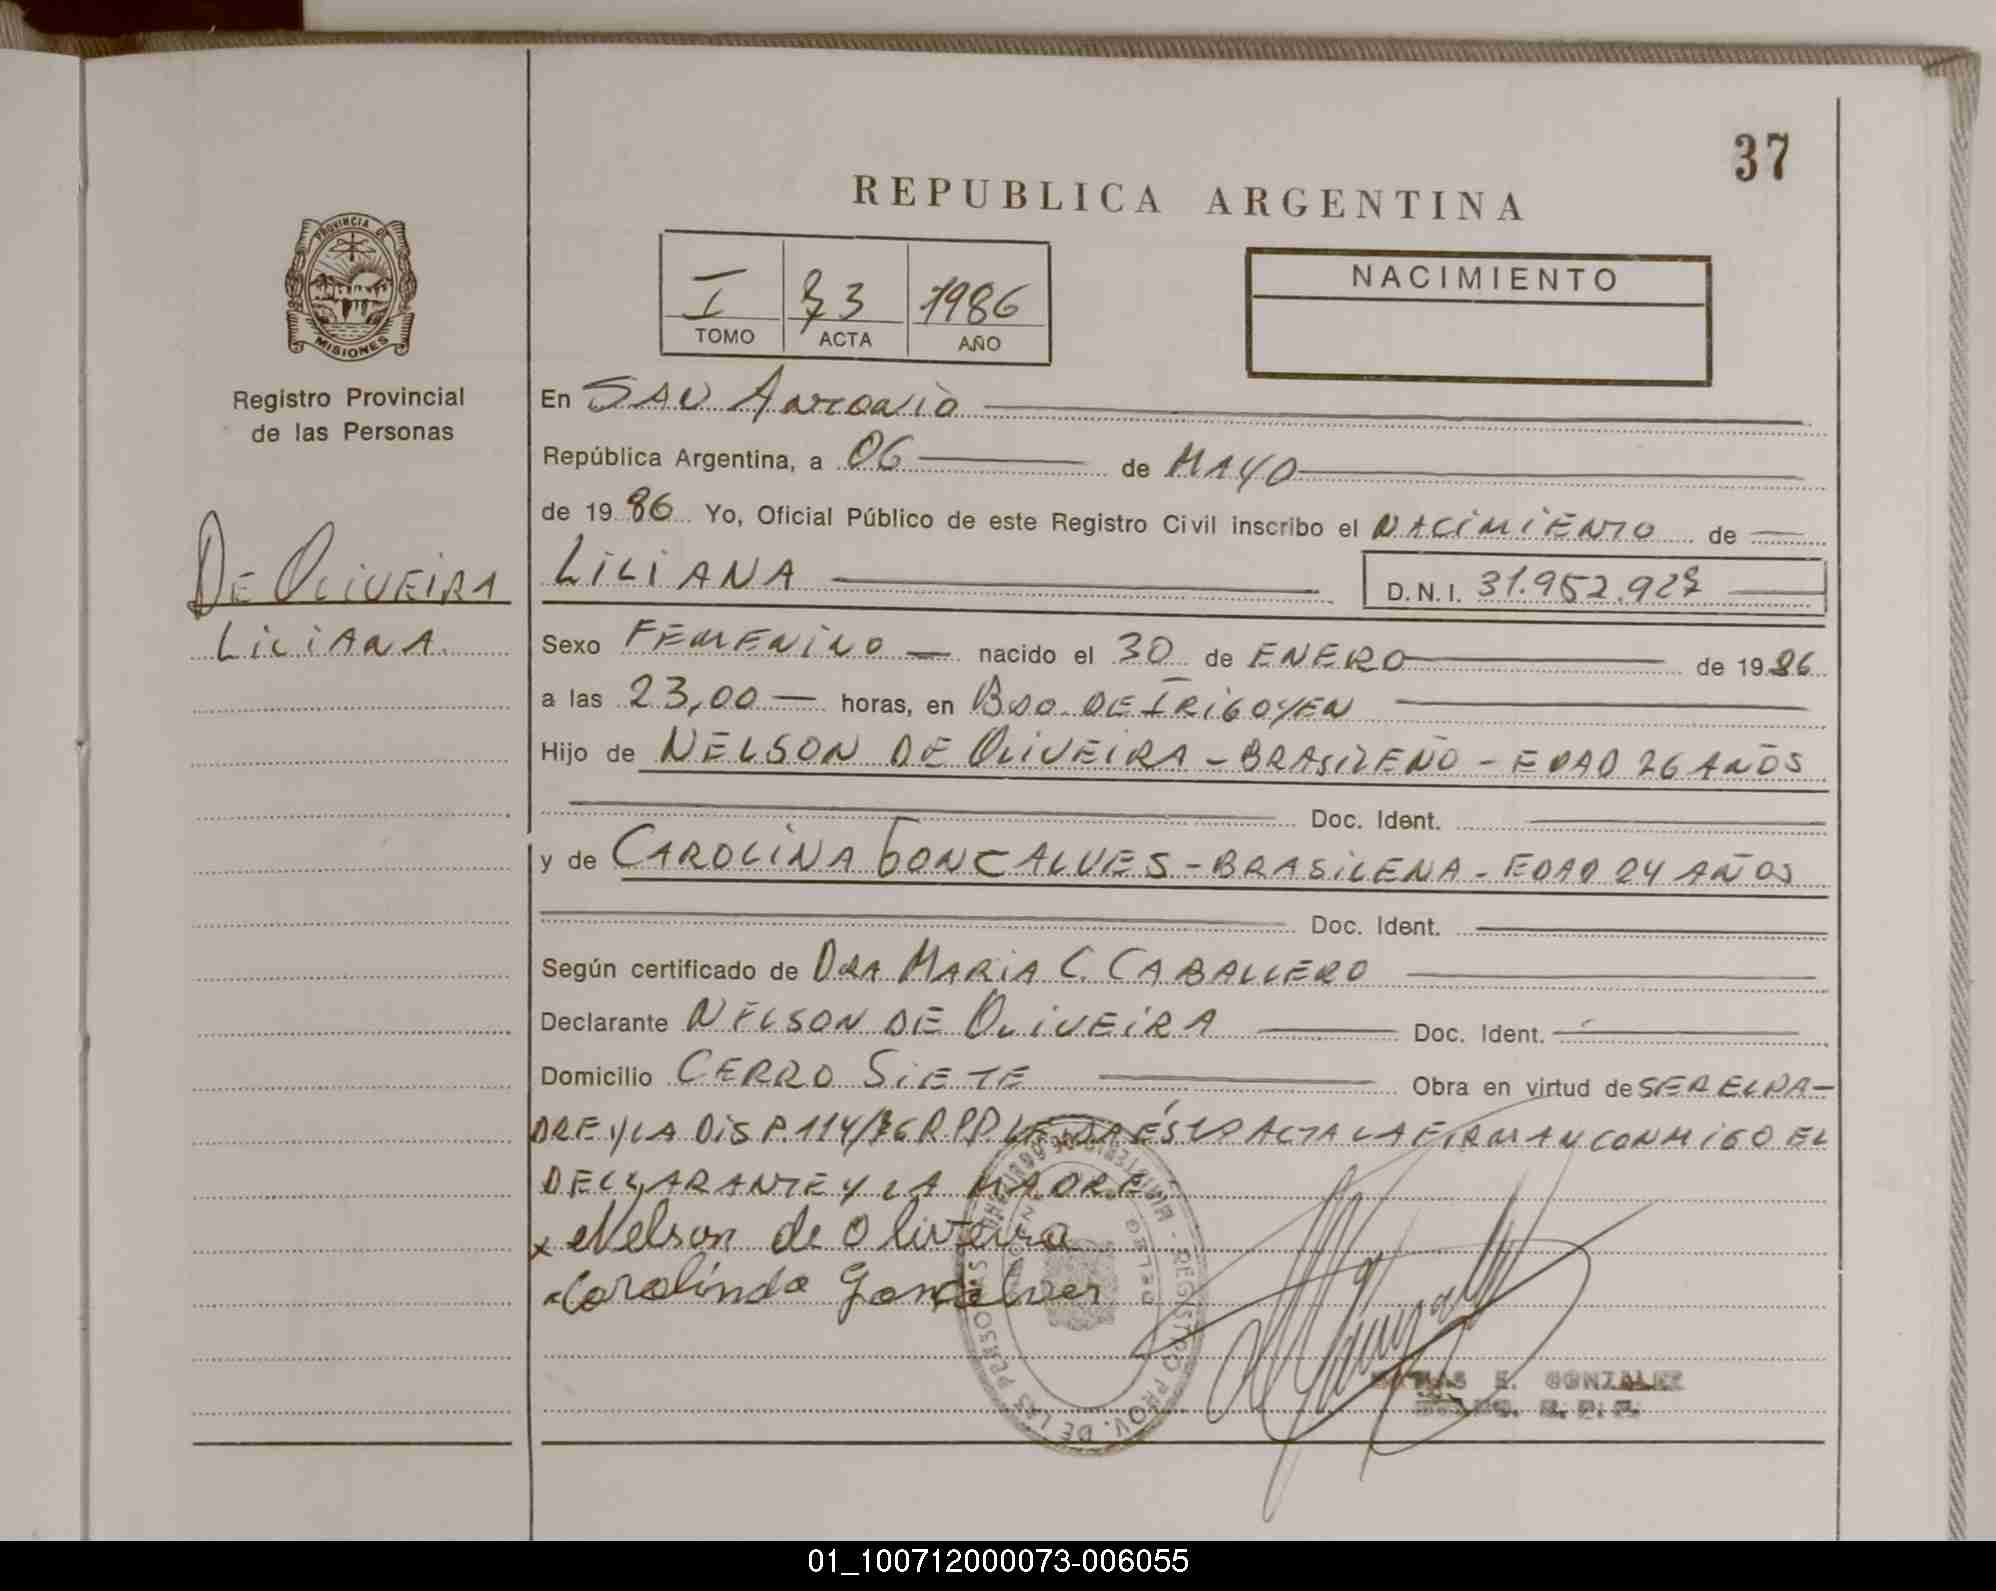 37
REPUBLICA ARGENTINA
PROVINCIA DE
MISIONES
Registro Provincial
de las Personas
I 73 1986
TOMO ACTA AÑO
NACIMIENTO
En SAN ANTONIO
República Argentina, a 06 de MAYO
de 1986 Yo, Oficial Público de este Registro Civil inscribo el NACIMIENTO de
DE OLIVEIRA
LILIANA
LILIANA D.N.I. 31.952.927
Sexo FEMENINO nacido el 30 de ENERO de 1986
a las 23,00 horas, en BDO. DE IRIGOYEN
Hijo de NELSON DE OLIVEIRA - BRASILEÑO - EDAD 26 AÑOS
Doc. Ident.
y de CAROLINA GONCALVES - BRASILENA - EDAD 24 AÑOS
Doc. Ident.
Según certificado de DRA MARIA C. CABALLERO
Declarante NELSON DE OLIVEIRA Doc. Ident.
Domicilio CERRO SIETE Obra en virtud de SER EL PA-
DRE Y LA DISP. 114/ R.P.P. ACTA LA FIRMAN CONMIGO EL
DECLARANTE Y LA MADRE
x Nelson de Oliveira
Carolinda Gonçalves
REGISTRO PROV. DE LAS PERSONAS
E. GONZALEZ
01_100712000073-006055